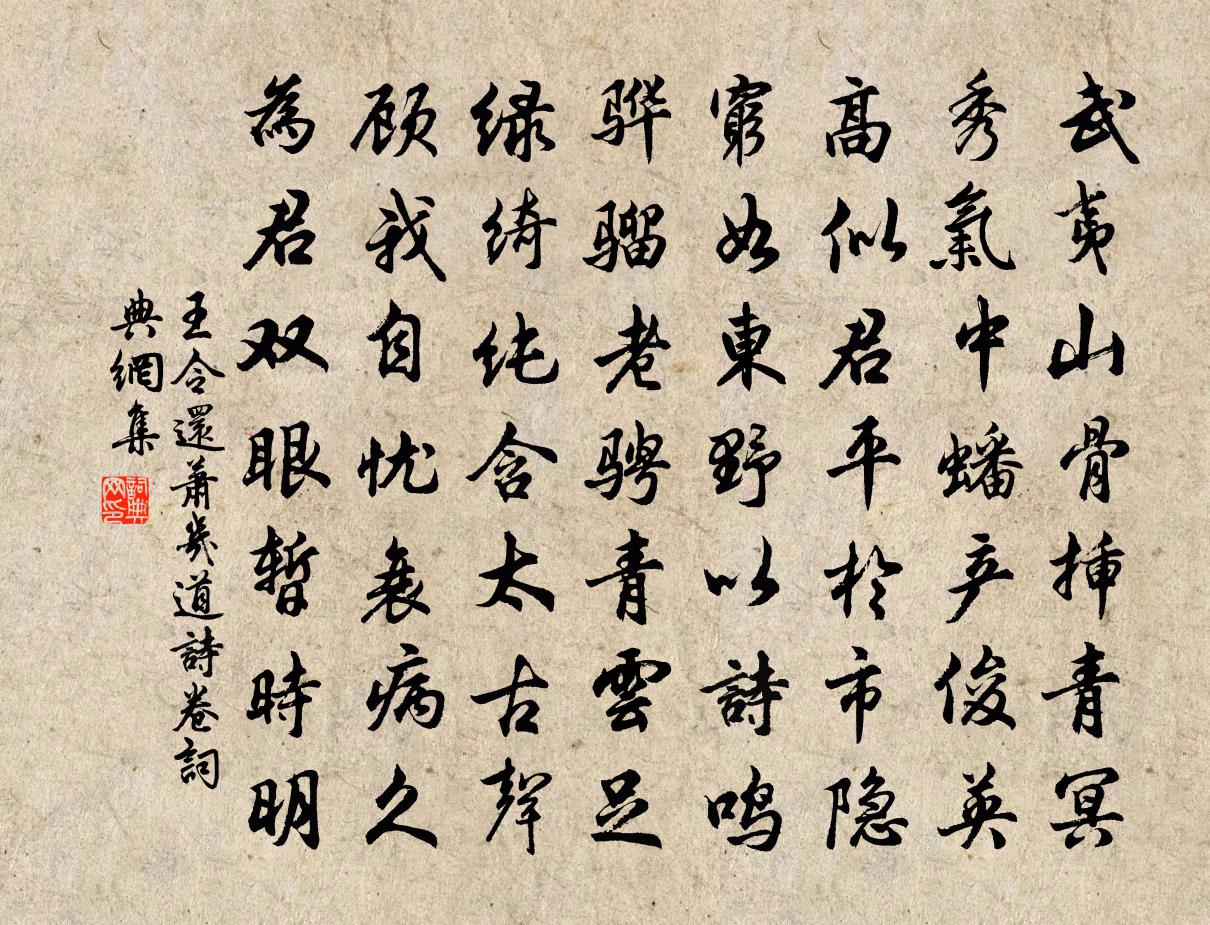 武夷山骨插青冥
秀氣中蟠产俊英
高似君平於市隐
窮如東野以詩鸣
骅骝老骋青雲足
绿绮纯含太古聲
顾我自忧衰病久
為君双眼暫時明
王令還蕭幾道詩卷詞
典網集
詞典网印